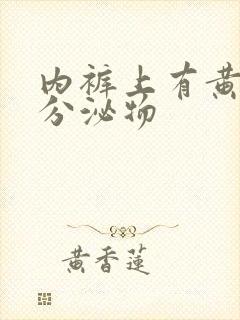 内裤上有黄
分泌物
黄香莲